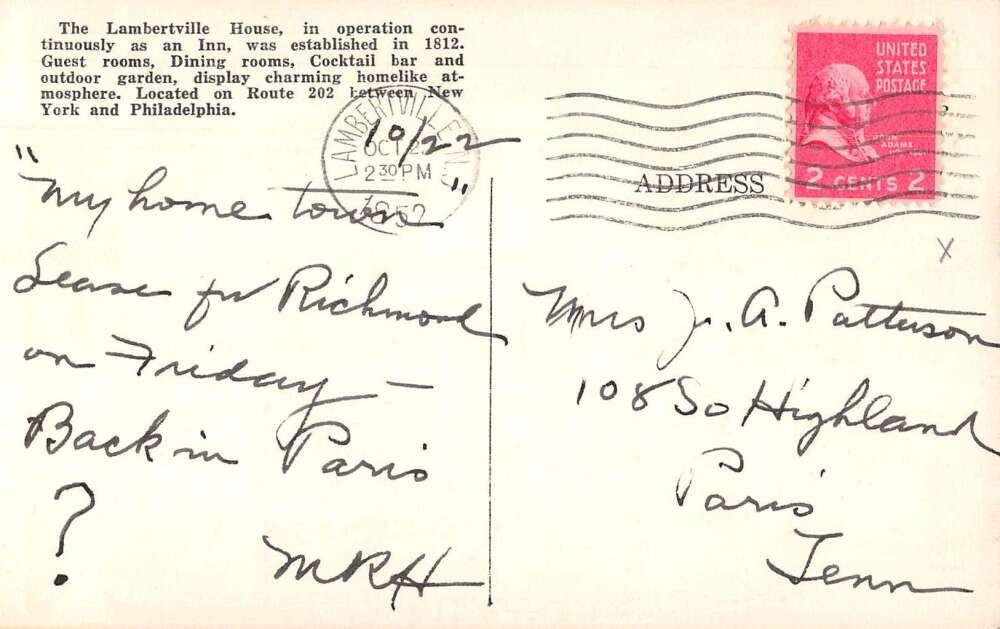 The Lambertville House, in operation con-
tinuously as an Inn, was established in 1812.
Guest rooms, Dining rooms, Cocktail bar and
outdoor garden, display charming homelike at-
mosphere. Located on Route 202 between New
York and Philadelphia.
10/22
LAMBERTVILLE N.J.
OCT 2
2 30 PM
1952
"My home town"
Leave for Richmond
on Friday —
Back in Paris
?
MRH
UNITED
STATES
POSTAGE
JOHN
ADAMS
2 CENTS 2
ADDRESS
x
Mrs J. A. Patterson
108 So Highland
Paris
Tenn